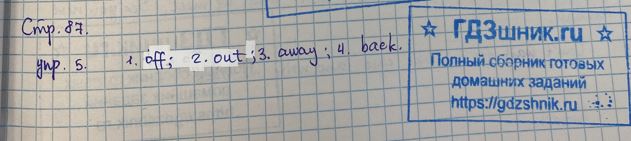 Стр. 87.
упр. 5. 1. off; 2. out; 3. away; 4. back.
ГДЗшник.ru
Полный сборник готовых
домашних заданий
https://gdzshnik.ru